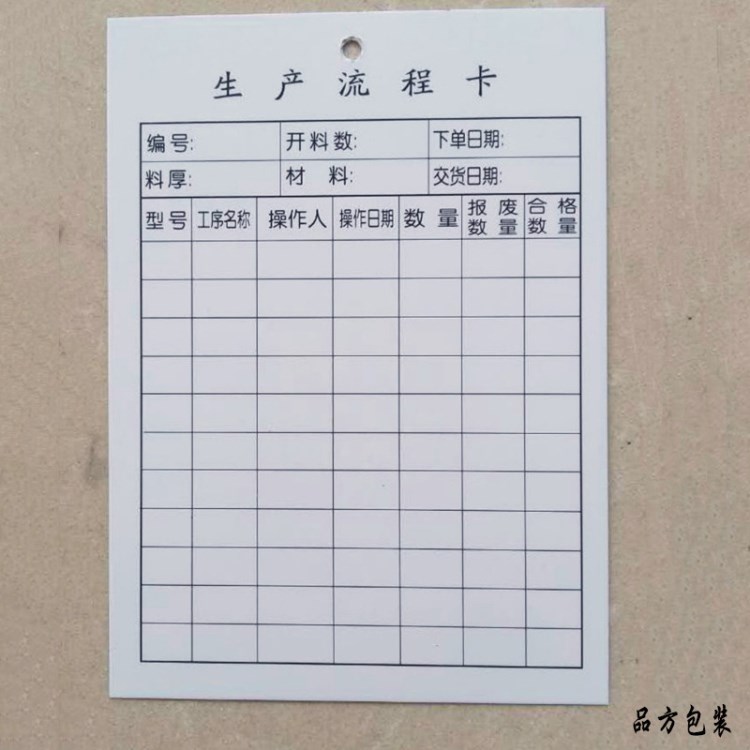 生产流程卡
编号: 开料数: 下单日期:
料厚: 材料: 交货日期:
型号 工序名称 操作人 操作日期 数量 报废数量 合格数量
品方包装